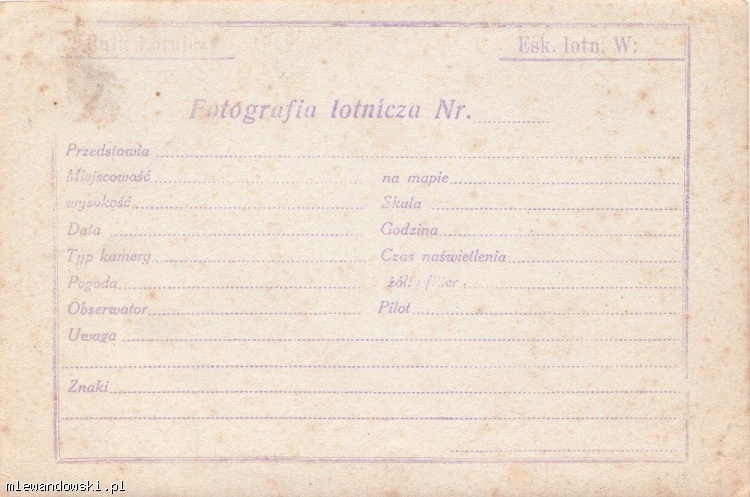 Pułk Lotniczy Esk. lotn. W:
Fotografia lotnicza Nr.
Przedstawia
Miejscowość na mapie
wysokość Skala
Data Godzina
Typ kamery Czas naświetlenia
Pogoda żółty filter
Obserwator Pilot
Uwaga
Znaki
mlewandowski.pl